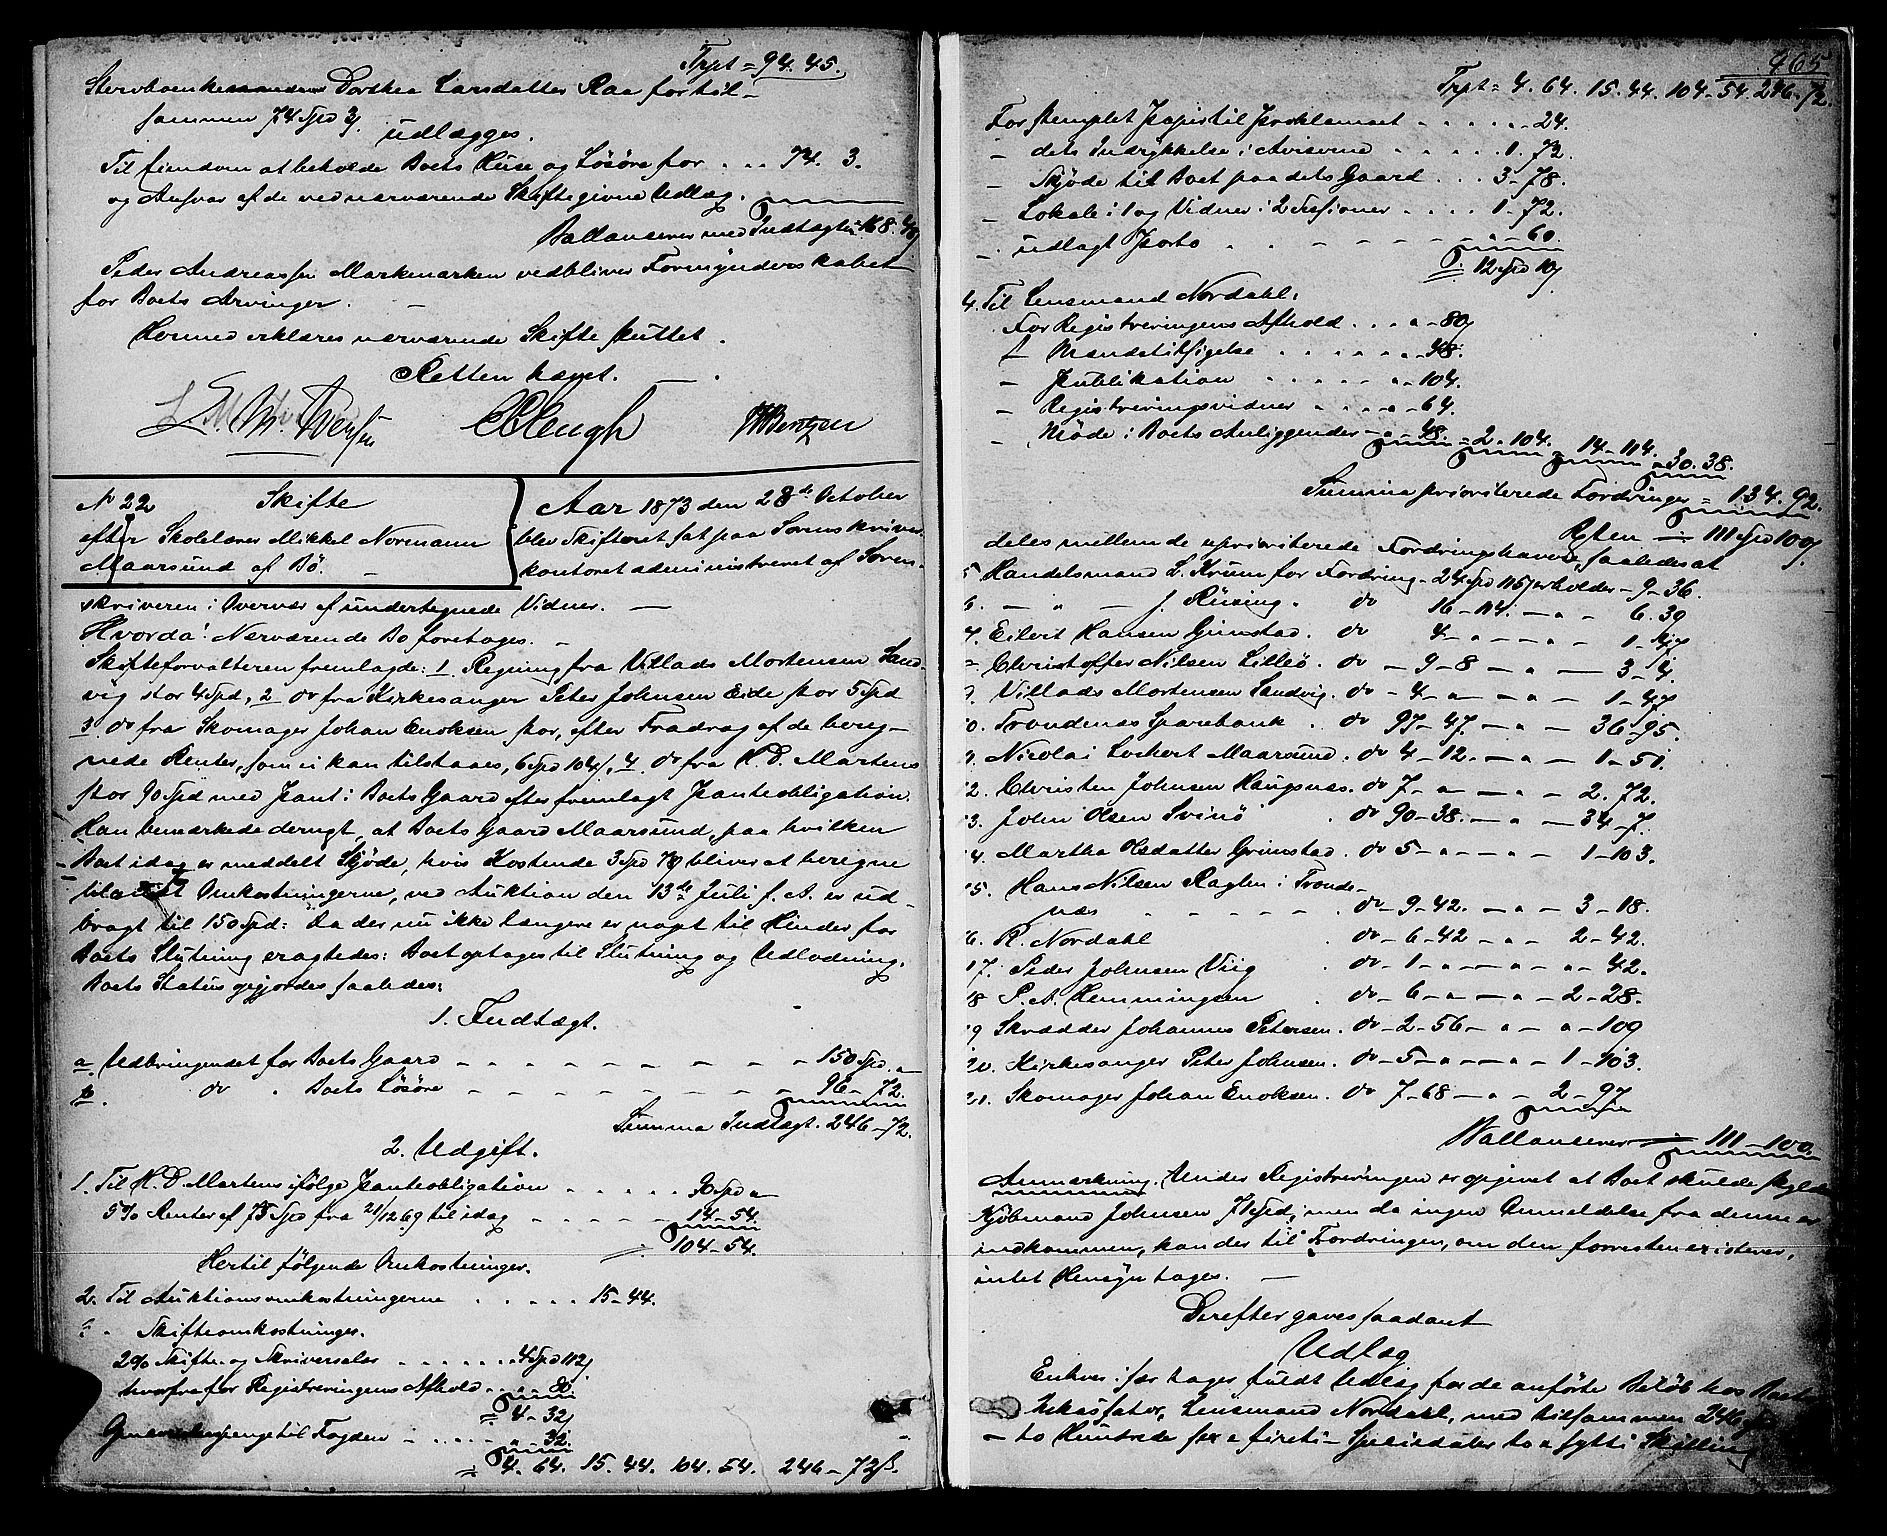 Trpt = 94. 45.
Stervboenke Dorthea Larsdatter Raa for til-
sammen 74 Spd 3ß
udlægges.
Til Eiendom at beholde Boets Huse og Løsøre for . . . 74. 3.
og Ansvar af de ved nærværende Skifte givne Udlæg.
Ballancerer med Indtægten 168. 48ß
Peder Andreassen Markemarken vedbliver Formynderskabet
for Boets Arvinger. —
Hermed erklæres nærværende Skifte sluttet.
Retten hævet. —
CBlengh
Berntzen
N 22 Skifte
efter Skolelærer Mikkel Normann
Maarsund af Bö. —
Aar 1873 den 28de October
blev Skifteret sat paa Sorenskriver-
kontoret administreret af Soren-
skriveren i Overvær af undertegnede Vidner. —
Hvorda! Nærværende Bo foretages. —
Skifteforvalteren fremlagde: 1. Regning fra Villads Mortensen Sand-
vig stor 4 Spd, 2 do fra Kirkesanger Peter Johnsen Eide stor 5 Spd
3 do fra Skomager Johan Enoksen stor, efter Fradrag af de bereg-
nede Renter, som ei kan tilstaaes, 6 Spd 104ß, 4. do fra H. D. Martens
stor 90 Spd med Pant i Boets Gaard efter fremlagt Panteobligation.
Han bemærkede derhos, at Boets Gaard Maarsund, paa hvilken
Boet idag er meddelt Skjøde, hvis Kostende 3 Spd 78ß bliver at beregne
Omkostningerne, ved Auktion den 13de Juli f. A. er ud-
bragt til 150 Spd: Da der nu ikke længere er noget til Hinder for
Boets Slutning eragtedes: Boet optages til Slutning og Udlodning.
Boets Status opgjordes saaledes:
1. Indtægt.
a. Udbringendet for Boets Gaard — — — 150 Spd. "
b. do . Boets Løsøre — — — 96 - 72.
Summa Indtægt. 246 - 72.
2. Udgift.
1. Til H. D. Martens ifølge Panteobligation . . . . . 90 Spd "
5% Renter af 75 Spd fra 21/12 69 til idag — — 14 - 54.
104 - 54.
Hertil følgende Omkostninger.
2. Til Auktionsomkostningerne . . . . . 15 - 44.
Skifteomkostninger.
2% Skifte- og Skriversalær . . . . . 4 Spd 112ß
hvorfra for Registreringens Afhold . . . " 80.
= 4 - 32ß
til Fogden — . . . . " 32.
= 4. 64. 15. 44. 104. 54. 246 - 72ß.
465
Trpt = 4. 64. 15. 44. 104. 54. 246. 72.
For stemplet Papir til Proklamaet . . . . . " 24.
— dets Indrykkelse i Aviserne . . . . . 1. 72.
— Skjøde til Boet paa dets Gaard . . . 3 - 78.
— Lokale i 1 og Vidner i 2 Sessioner . . . . 1. 72.
— udlagt Porto . . — — — — " 60.
= 12 Spd 10ß
4. Til Lensmand Nordahl:
For Registreringens Afhold . . . " - 80ß
f Mandstilsigelse . . . . . " - 48.
— Publikation . . . . . " - 104.
— Registreringsvidner . . . " - 64.
— Møde i Boets Anliggender — " 48. = 2. 104. 14 - 114. 30. 38.
Summa prioriterede Fordringer = 134. 92.
Resten — 111 Spd 100ß.
deles mellem de uprioriterede Fordringshavere, saaledes at
5 Handelsmand L. Krum for Fordring - 24 Spd 115ß erholder - 9 - 36.
6. — " — J. Rüsing. do 16 - 114. — " - 6. 39
7. Eilert Hansen Grimstad. do 4 - " — " - 1 - 47
Christoffer Nilsen Lilleö. do — 9 - 8 — " — 3 - 4.
9. Villads Mortensen Sandvig. do - 4 - " — " - 1 - 47
10. Trondenæs Sparebank . do 97 - 47. — " — 36 - 95.
11. Nicolai Lockert Maarsund. do 4 - 12. — " — 1 - 51.
12. Christen Johnsen Haugsnæs. do 7 - " — " - 2. 72.
13. John Olsen Svinö . do 90 - 38. — " — 34 - 7.
14. Martha Olsdatter Grimstad. do 5 - " — " - 1 - 103.
15. Hans Nilsen Raglen i Tronde-
næs . . — — . do - 9 - 42. — " — 3 - 18.
16. R. Nordahl . do - 6 - 42 — " - 2 - 42.
17. Peder Johnsen Viig . do - 1 - " — " - " - 42.
18 P. A. Hemmingsen . do - 6 - " — " - 2 - 28.
19 Skrædder Johannes Petersen. do - 2 - 56 - " — " - 109
20. Kirkesanger Peter Johnsen. do - 5 - " — " - 1 - 103.
21. Skomager Johan Enoksen. do 7 - 68 — " — 2 - 97
Ballancerer — 111 - 100.
Anmærkning. Under Registreringen er opgivet at Boet skulde skylde
Kjöbmand Johnsen 71 Spd; men da ingen Anmeldelse fra denne er
indkommen, kan der til Fordringen, om den forresten existerer,
intet Hensyn tages. —
Derefter gaves saadant
Udlæg
Enhver især tages fuldt Udlæg for de anførte Beløb hos Boets
Inkassator, Lensmand Nordahl, med tilsammen 246 Spd
- to Hundrede sex a firti - Speciedaler to a sytti Skilling